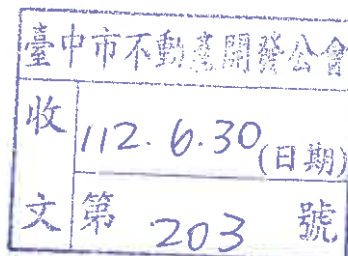 臺中市不動產開發公會
收
112.6.30(日期)
文
第 203 號